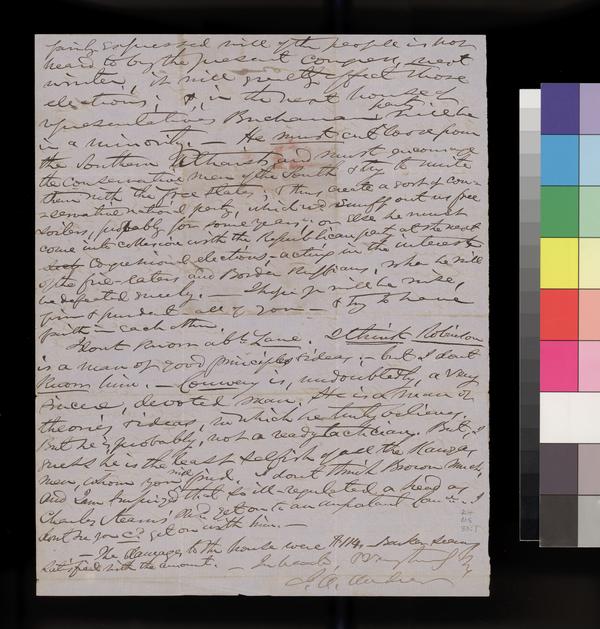 fairly expressed will of the people is not
heard to by the present congress, next
winter, it will greatly affect those
elections, &, in the next house of
representatives Buchanan party will be
in a minority. — He must cut loose from
the Southern and must encourage
the conservative men of the South & try to unite
them with the free States; & thus create a sort of con-
servative national party, which will snuff out us free
soilers, probably for some years; or else he must
come into collision with the Republican part at the next
Congressional elections, — acting in the interests
of the fire-eaters and Border Ruffians, when he will
be defeated surely. — I hope you will be wise,
firm & prudent all of you — & try to have
faith in each other.
I don't know abt. Lane. I think Robinson
is a man of good principles & ideas; — but I don't
know him. — Conway is, undoubtedly, a very
sincere, devoted man. He is a man of
theories & ideas, in which he truly believes.
But he is, probably, not a ready tactician. But, I
guess he is the least selfish of all the Kansas
men, whom you may find. I don't think Brown much,
And I am surprised that so ill-regulated a head as
Charley Stearns' shd. get on
don't see you cd. get on with him. —
— The damages to the house were $114. seems
satisfied with the amount. — In haste,